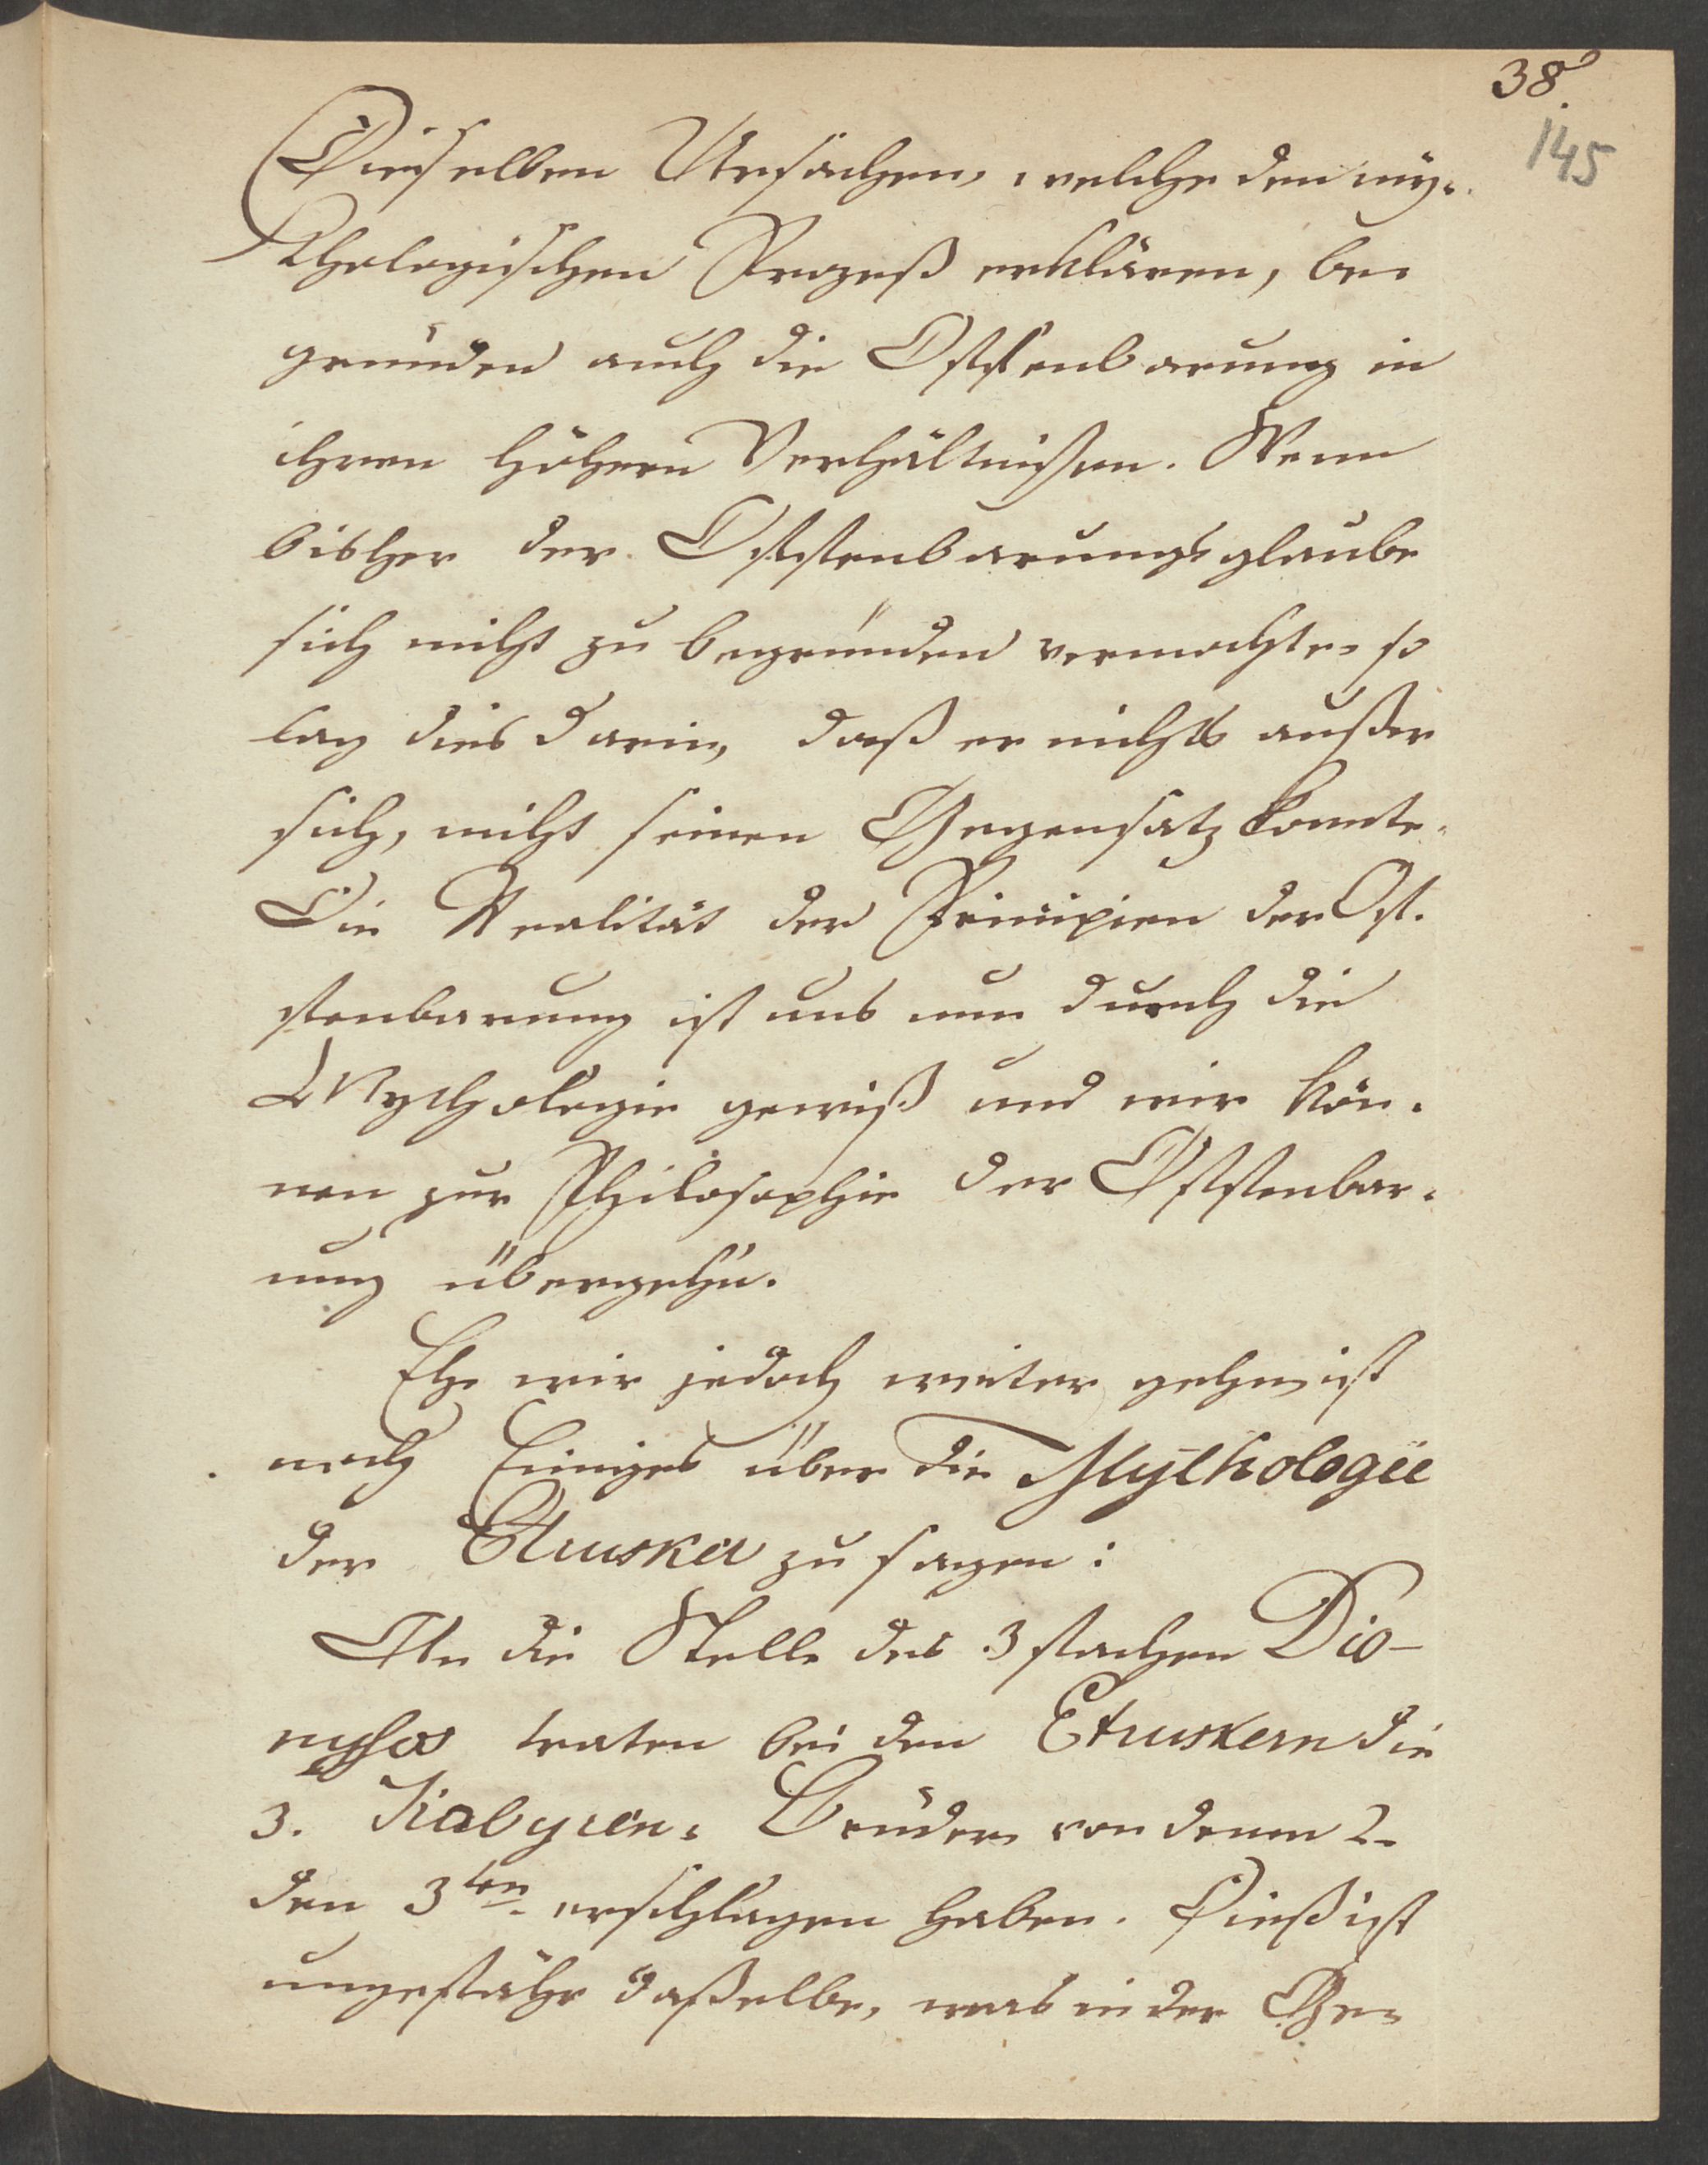 38.
145
Dieselben Ursachen, welche den my-
thologischen Prozeß erklären, be-
gründen auch die Offenbarung in
ihren höhern Verhältnissen. Wenn
bisher der Offenbarungsglaube
sich nicht zu begründen vermochte, so
lag dies darin, daß er nichts außer
sich, nicht seinen Gegensatz konnte.
Die Realität der Prinzipien der Of-
fenbarung ist uns nun durch die
Mythologie gewiß und wir kön-
nen zur Philosophie der Offenbar-
ung übergehn.
Ehe wir jedoch weiter gehn, ist
noch Einiges über die Mythologie
der Etrusker zu sagen:
An die Stelle des 3fachen Dio-
nysos traten bei den Etruskern die
3. Kabyren, Brüder, von denen 2.
den 3ten erschlagen haben. Dieß ist
ungefähr dasselbe, was in der Ge-